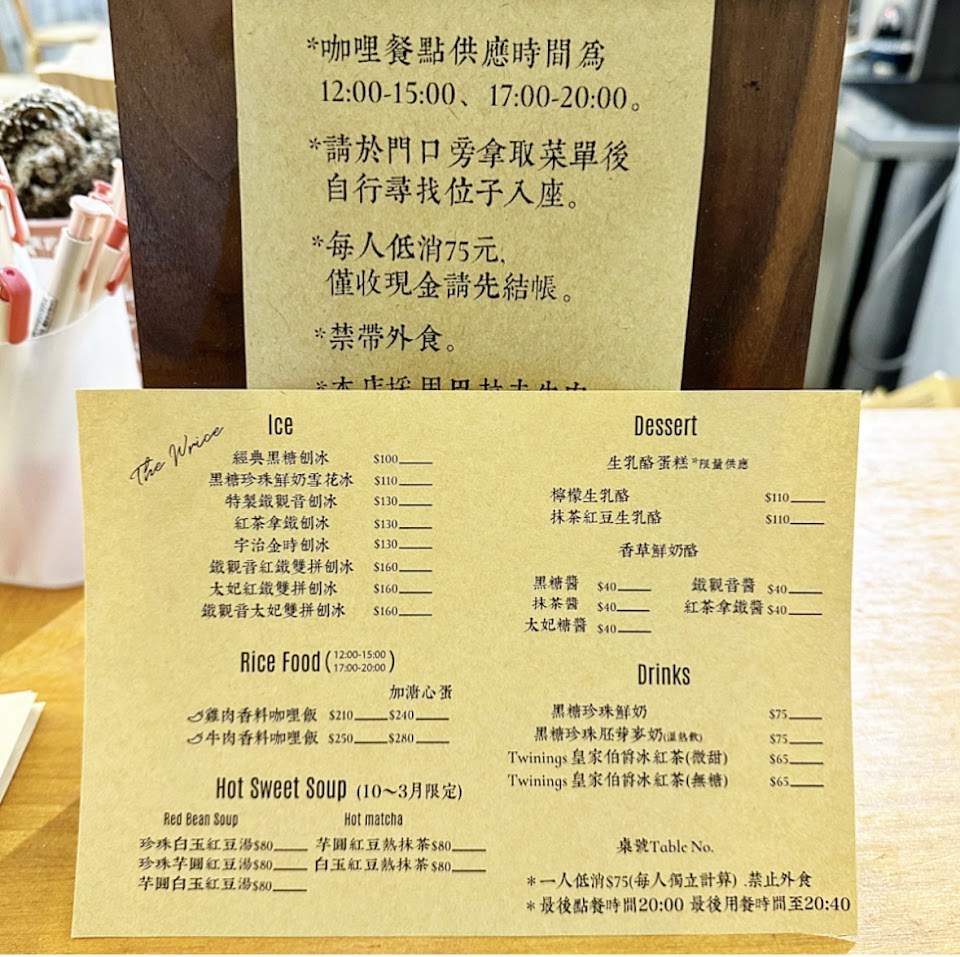 *咖哩餐點供應時間為
12:00-15:00、17:00-20:00。
*請於門口旁拿取菜單後
自行尋找位子入座。
*每人低消75元,
僅收現金請先結帳。
*禁帶外食。
The Wrice
Ice
經典黑糖刨冰 $100
黑糖珍珠鮮奶雪花冰 $110
特製鐵觀音刨冰 $130
紅茶拿鐵刨冰 $130
宇治金時刨冰 $130
鐵觀音紅鐵雙拼刨冰 $160
太妃紅鐵雙拼刨冰 $160
鐵觀音太妃雙拼刨冰 $160
Rice Food (12:00-15:00
17:00-20:00)
加溏心蛋
雞肉香料咖哩飯 $210 $240
牛肉香料咖哩飯 $250 $280
Hot Sweet Soup (10～3月限定)
Red Bean Soup Hot matcha
珍珠白玉紅豆湯$80 芋圓紅豆熱抹茶$80
珍珠芋圓紅豆湯$80 白玉紅豆熱抹茶$80
芋圓白玉紅豆湯$80
Dessert
生乳酪蛋糕*限量供應
檸檬生乳酪 $110
抹茶紅豆生乳酪 $110
香草鮮奶酪
黑糖醬 $40 鐵觀音醬 $40
抹茶醬 $40 紅茶拿鐵醬 $40
太妃糖醬 $40
Drinks
黑糖珍珠鮮奶 $75
黑糖珍珠胚芽麥奶(溫熱飲) $75
Twinings 皇家伯爵冰紅茶(微甜) $65
Twinings 皇家伯爵冰紅茶(無糖) $65
桌號Table No.
*一人低消$75(每人獨立計算) .禁止外食
*最後點餐時間20:00 最後用餐時間至20:40